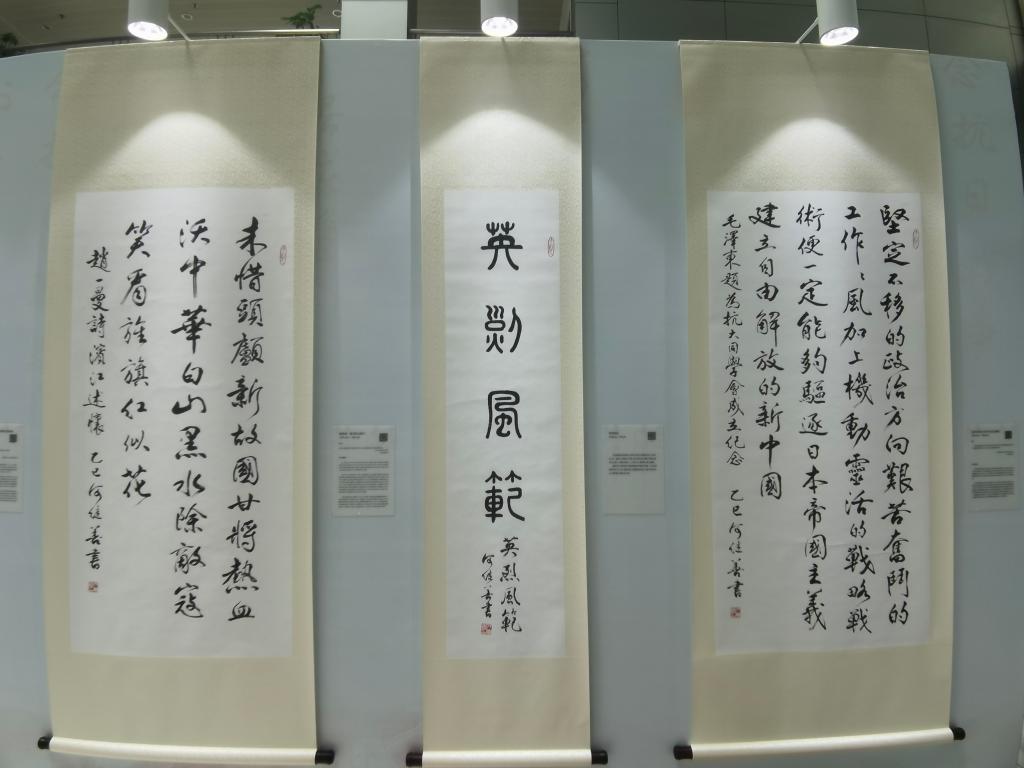 堅定不移的政治方向艱苦奮鬥的
工作〻風加上機動靈活的戰略戰
術便一定能夠驅逐日本帝國主義
建立自由解放的新中國
毛澤東題為抗大同學會成立纪念 乙巳何继善書
英烈風範
英烈風範
何继善書
未惜頭顱新故國甘將熱血
沃中華白山黑水除敵寇
笑看旌旗紅似花
趙一曼詩濱江述懷 乙巳何继善書
抗日